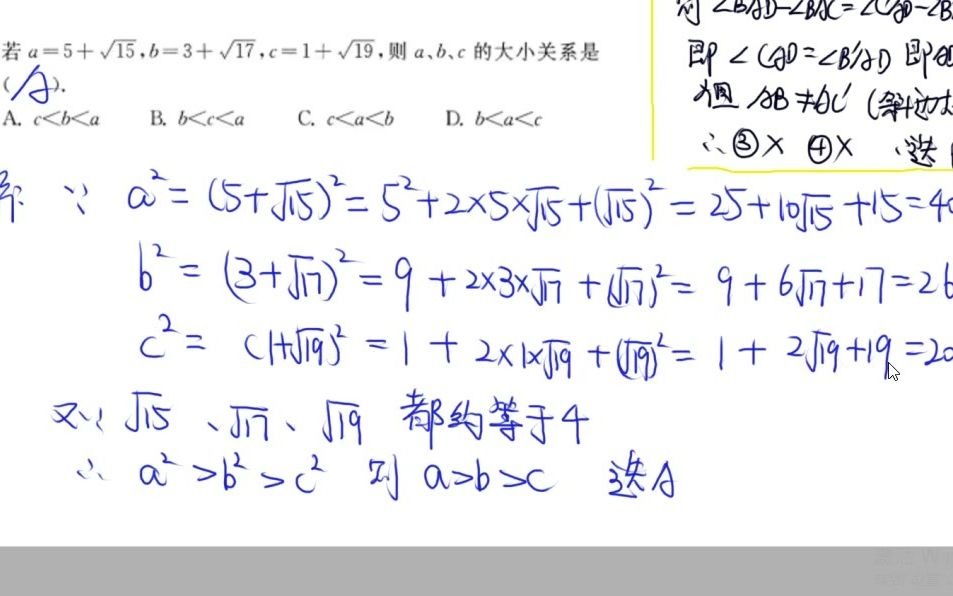 若 a=5+√15,b=3+√17,c=1+√19,则 a、b、c 的大小关系是
(A).
A. c<b<a B. b<c<a C. c<a<b D. b<a<c
对 ∠BAD-∠BAC=∠CAD-∠B
即 ∠CAD=∠B'AD 即
AB≠AC'
∴③× ④× ∴选
∵ a²=(5+√15)²=5²+2×5×√15+(√15)²=25+10√15+15=40
b²=(3+√17)²=9+2×3×√17+(√17)²=9+6√17+17=26
c²=(1+√19)²=1+2×1×√19+(√19)²=1+2√19+19=20
又∵√15、√17、√19 都约等于4
∴ a²>b²>c² 则 a>b>c 选A